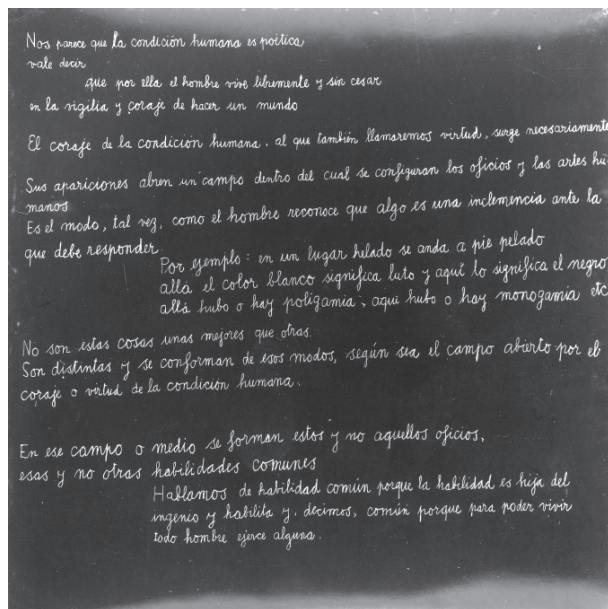 Nos parece que la condición humana es poética
vale decir
que por ella el hombre vive libremente y sin cesar
en la vigilia y coraje de hacer un mundo
El coraje de la condición humana, al que también llamaremos virtud, surge necesariamente
Sus apariciones abren un campo dentro del cual se configuran los oficios y las artes hu
manos
Es el modo, tal vez, como el hombre reconoce que algo es una inclemencia ante la
que debe responder
Por ejemplo: en un lugar helado se anda a pie pelado
allá el color blanco significa luto y aquí lo significa el negro
allá hubo o hay poligamia, aquí hubo o hay monogamia etc
No son estas cosas unas mejores que otras.
Son distintas y se conforman de esos modos, según sea el campo abierto por el
coraje o virtud de la condición humana.
En ese campo o medio se forman estos y no aquellos oficios,
esas y no otras habilidades comunes
Hablamos de habilidad común porque la habilidad es hija del
ingenio y habilita y, decimos, común porque para poder vivir
todo hombre ejerce alguna.